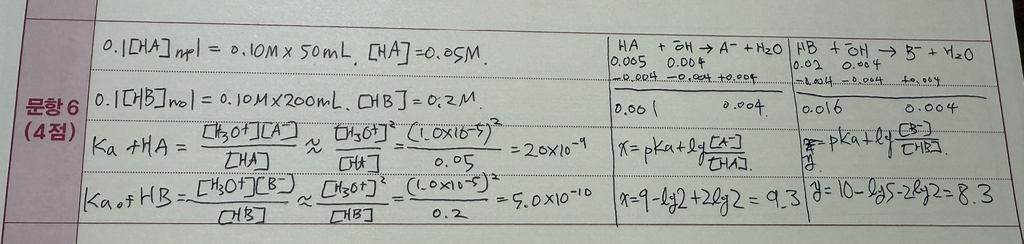 문항 6
(4점)
0.1[HA] mol = 0.10M × 50mL, [HA]=0.05M.
0.1[HB] mol = 0.10M × 200mL. [HB]=0.2M.
Ka of HA = [H3O+][A-]/[HA] ≈ [H3O+]²/[HA] = (1.0×10^-5)²/0.05 = 2.0×10^-9
Ka of HB = [H3O+][B-]/[HB] ≈ [H3O+]²/[HB] = (1.0×10^-5)²/0.2 = 5.0×10^-10
HA + OH → A- + H2O
0.005 0.004
-0.004 -0.004 +0.004
0.001 0.004
x = pKa + lg [A-]/[HA].
x=9-lg2+2lg2 = 9.3
HB + OH → B- + H2O
0.02 0.004
-0.004 -0.004 +0.004
0.016 0.004
y = pKa + lg [B-]/[HB].
y=10-lg5-2lg2=8.3